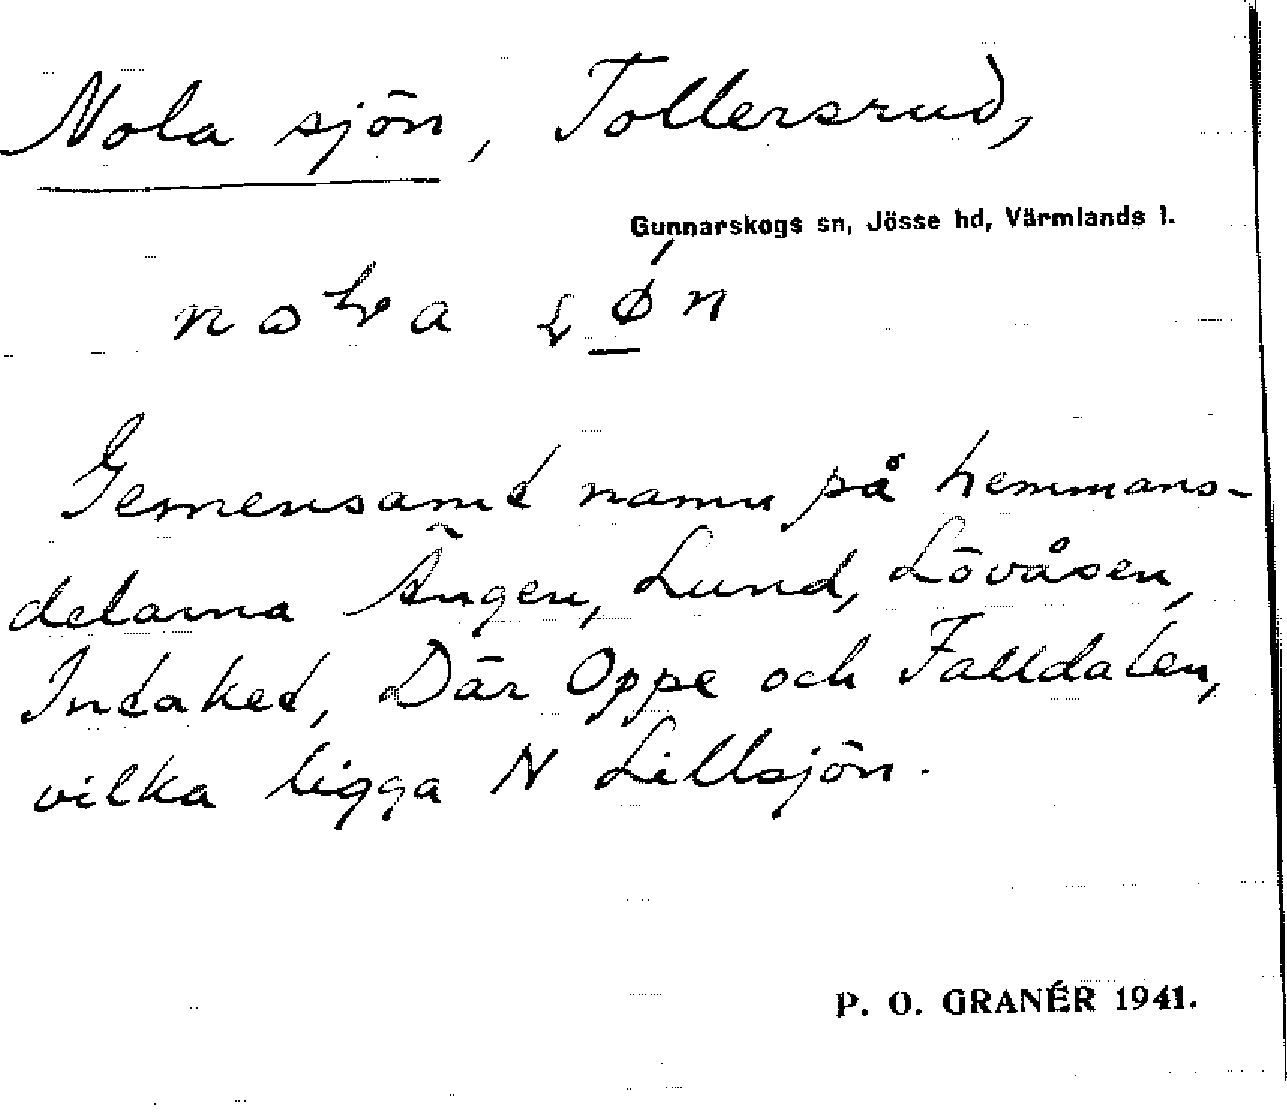 Nola sjön, Tollersrud,
Gunnarskogs sn, Jösse hd, Värmlands l.
Gemensamt namn på hemmans-
delarna Ängen, Lund, Lövåsen,
Intaket, Där Oppe och Falldalen,
vilka ligga N Lillsjön.
P. O. GRANÉR 1941.